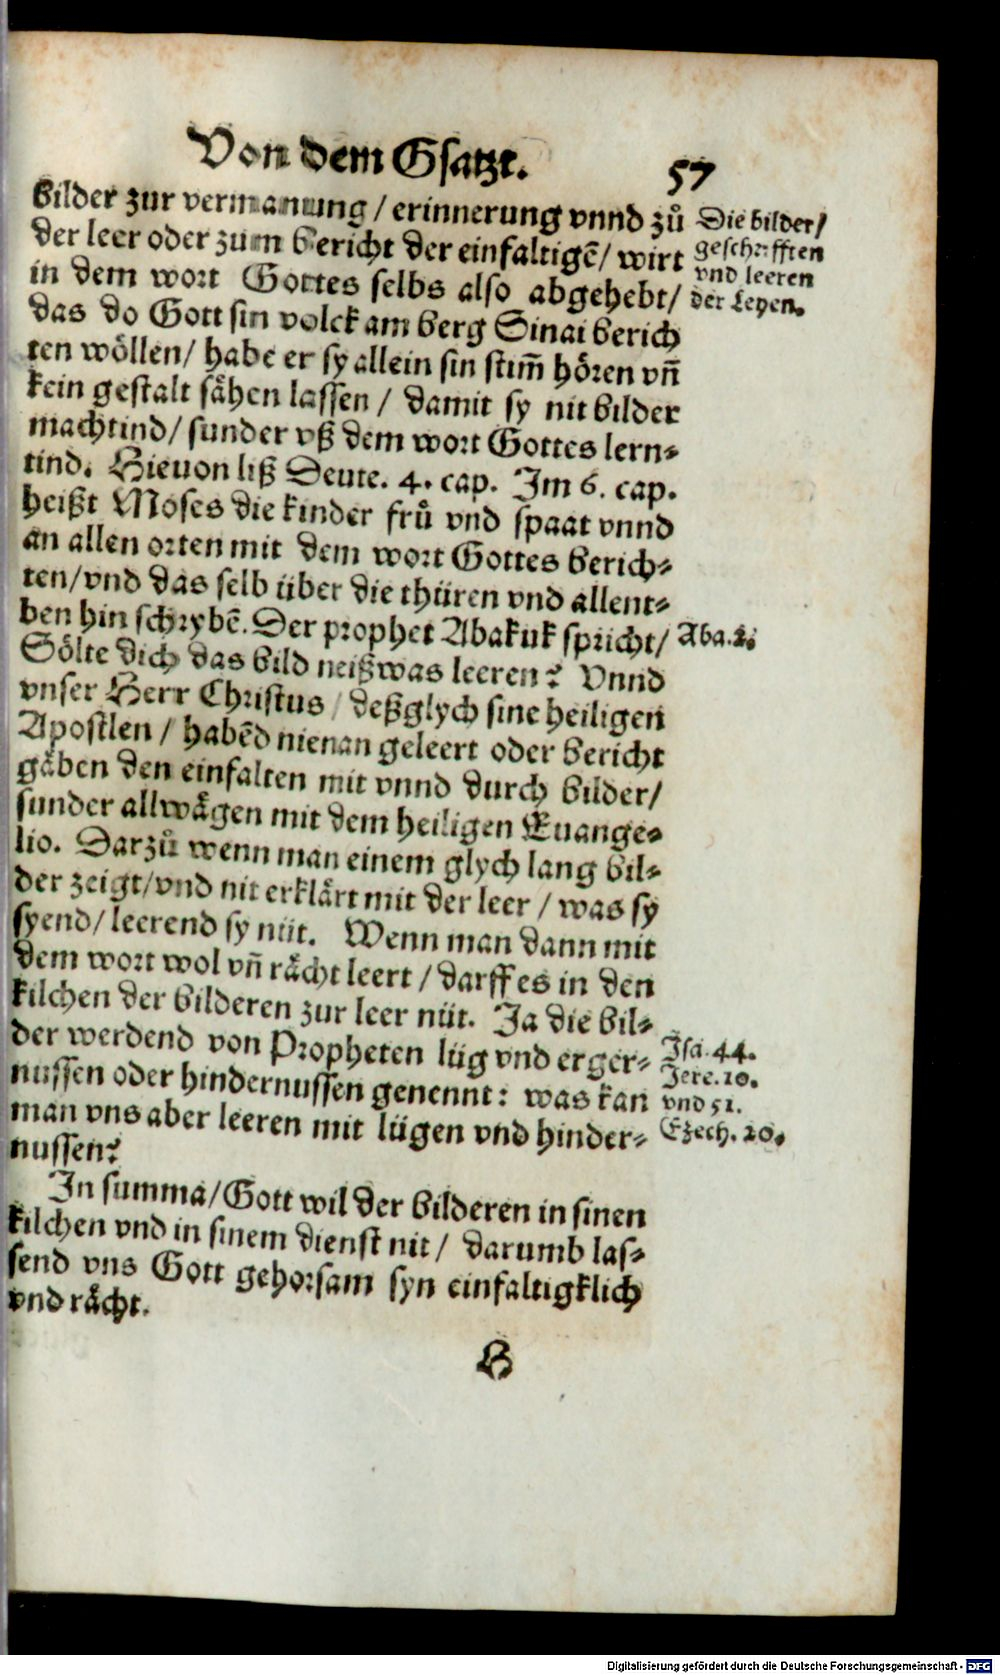 Von dem Gsatzt.
57
bilder zur vermanung / erinnerung vnnd zů
der leer oder zum bericht der einfaltigē / wirt
in dem wort Gottes selbs also abgehebt /
das do Gott sin volck am berg Sinai berich
ten wöllen / habe er sy allein sin stim̄ hören vn̄
kein gestalt sähen lassen / damit sy nit bilder
machtind / sunder vß dem wort Gottes lern⸗
tind. Hieuon liß Deute. 4. cap. Im 6. cap.
heißt Moses die kinder frů vnd spaat vnnd
an allen orten mit dem wort Gottes berich⸗
ten / vnd das selb über die thüren vnd allent⸗
ben hin schrybē. Der prophet Abakuk spricht /
Sölte dich das bild neißwas leeren? Vnnd
vnser Herr Christus / deßglych sine heiligen
Apostlen / habēd nienan geleert oder bericht
gäben den einfalten mit vnnd durch bilder /
sunder allwägen mit dem heiligen Euange⸗
lio. Darzů wenn man einem glych lang bil⸗
der zeigt / vnd nit erklärt mit der leer / was sy
syend / leerend sy nüt. Wenn man dann mit
dem wort wol vn̄ rächt leert / darff es in den
kilchen der bilderen zur leer nüt. Ja die bil⸗
der werdend von Propheten lüg vnd erger⸗
nussen oder hindernussen genennt: was kan
man vns aber leeren mit lügen vnd hinder⸗
nussen?
In summa / Gott wil der bilderen in sinen
kilchen vnd in sinem dienst nit / darumb las⸗
send vns Gott gehorsam syn einfaltigklich
vnd rächt.
H
Die bilder /
geschrifften
vnd leeren
der Leyen.
Aba. 2.
Isa. 44.
Jere. 10.
vnd 51.
Ezech. 20.
Digitalisierung gefördert durch die Deutsche Forschungsgemeinschaft - DFG